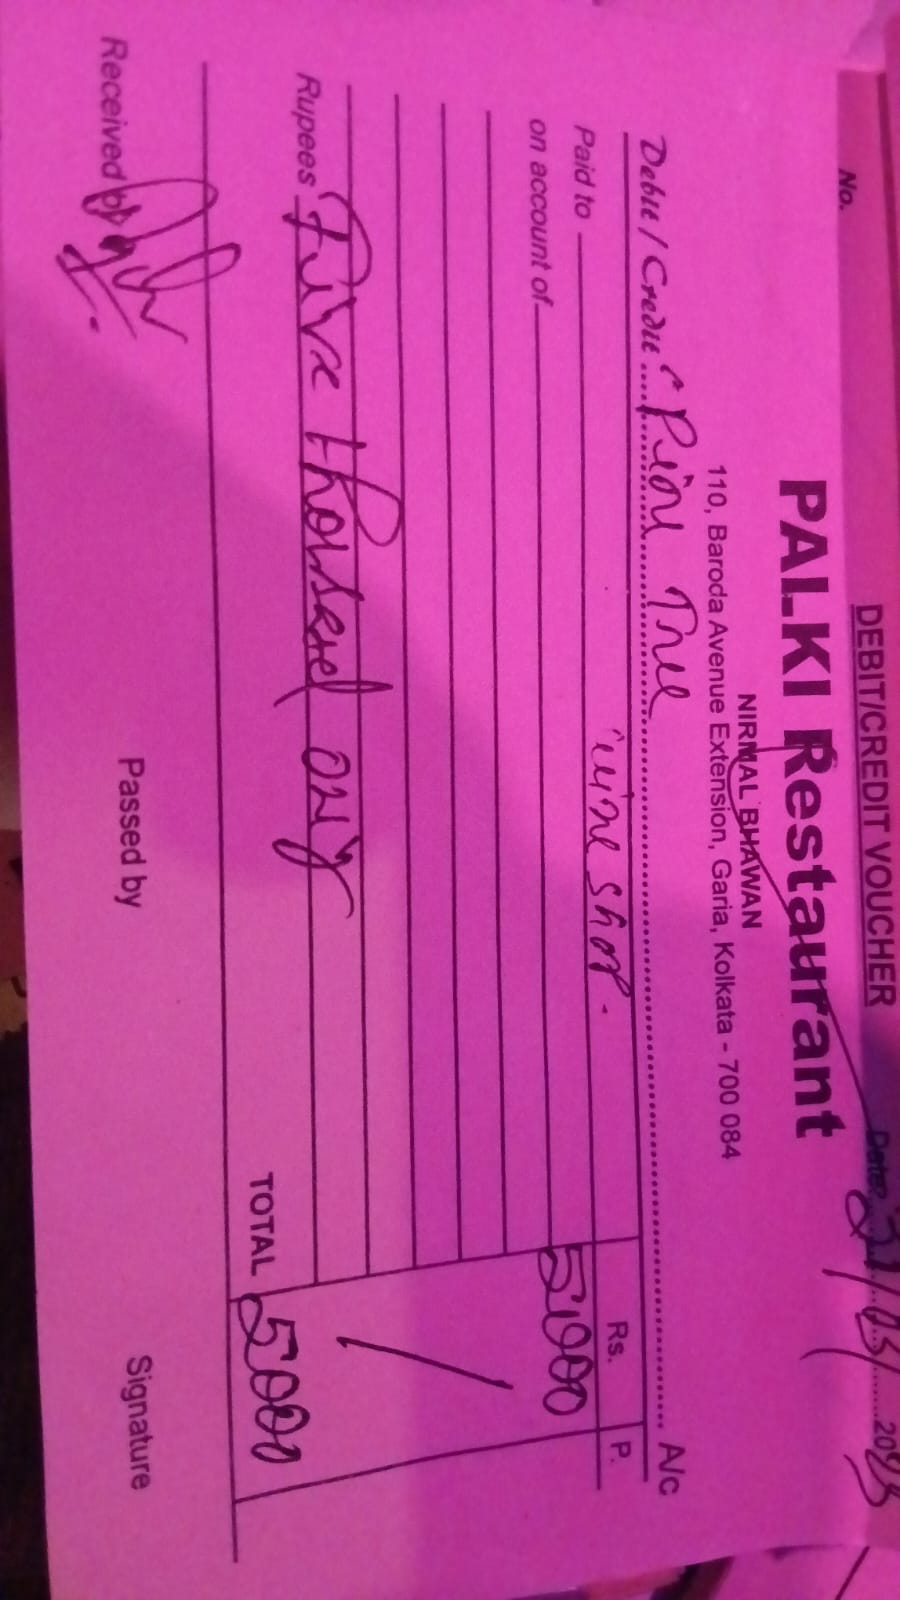 DEBIT/CREDIT VOUCHER
No.
Date 21/03/2023
PALKI Restaurant
NIRMAL BHAWAN
110, Baroda Avenue Extension, Garia, Kolkata - 700 084
Debit / Credit "Pine Tree A/c
Paid to wine shop. Rs. P.
on account of 5000
Rupees Five thousand only
TOTAL 5000
Received by Passed by Signature